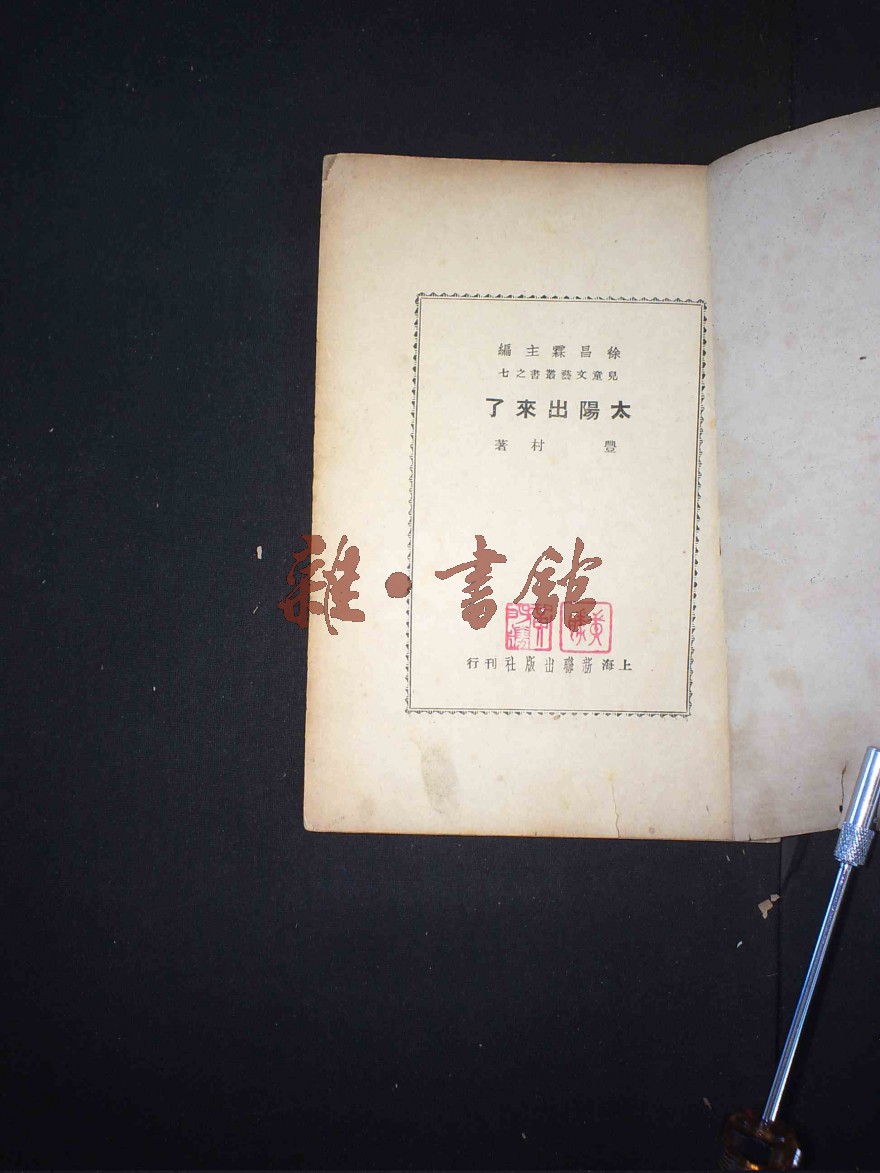 徐昌霖主編
兒童文藝叢書之七
太陽出來了
豐村著
雜·書館
上海新聯出版社刊行